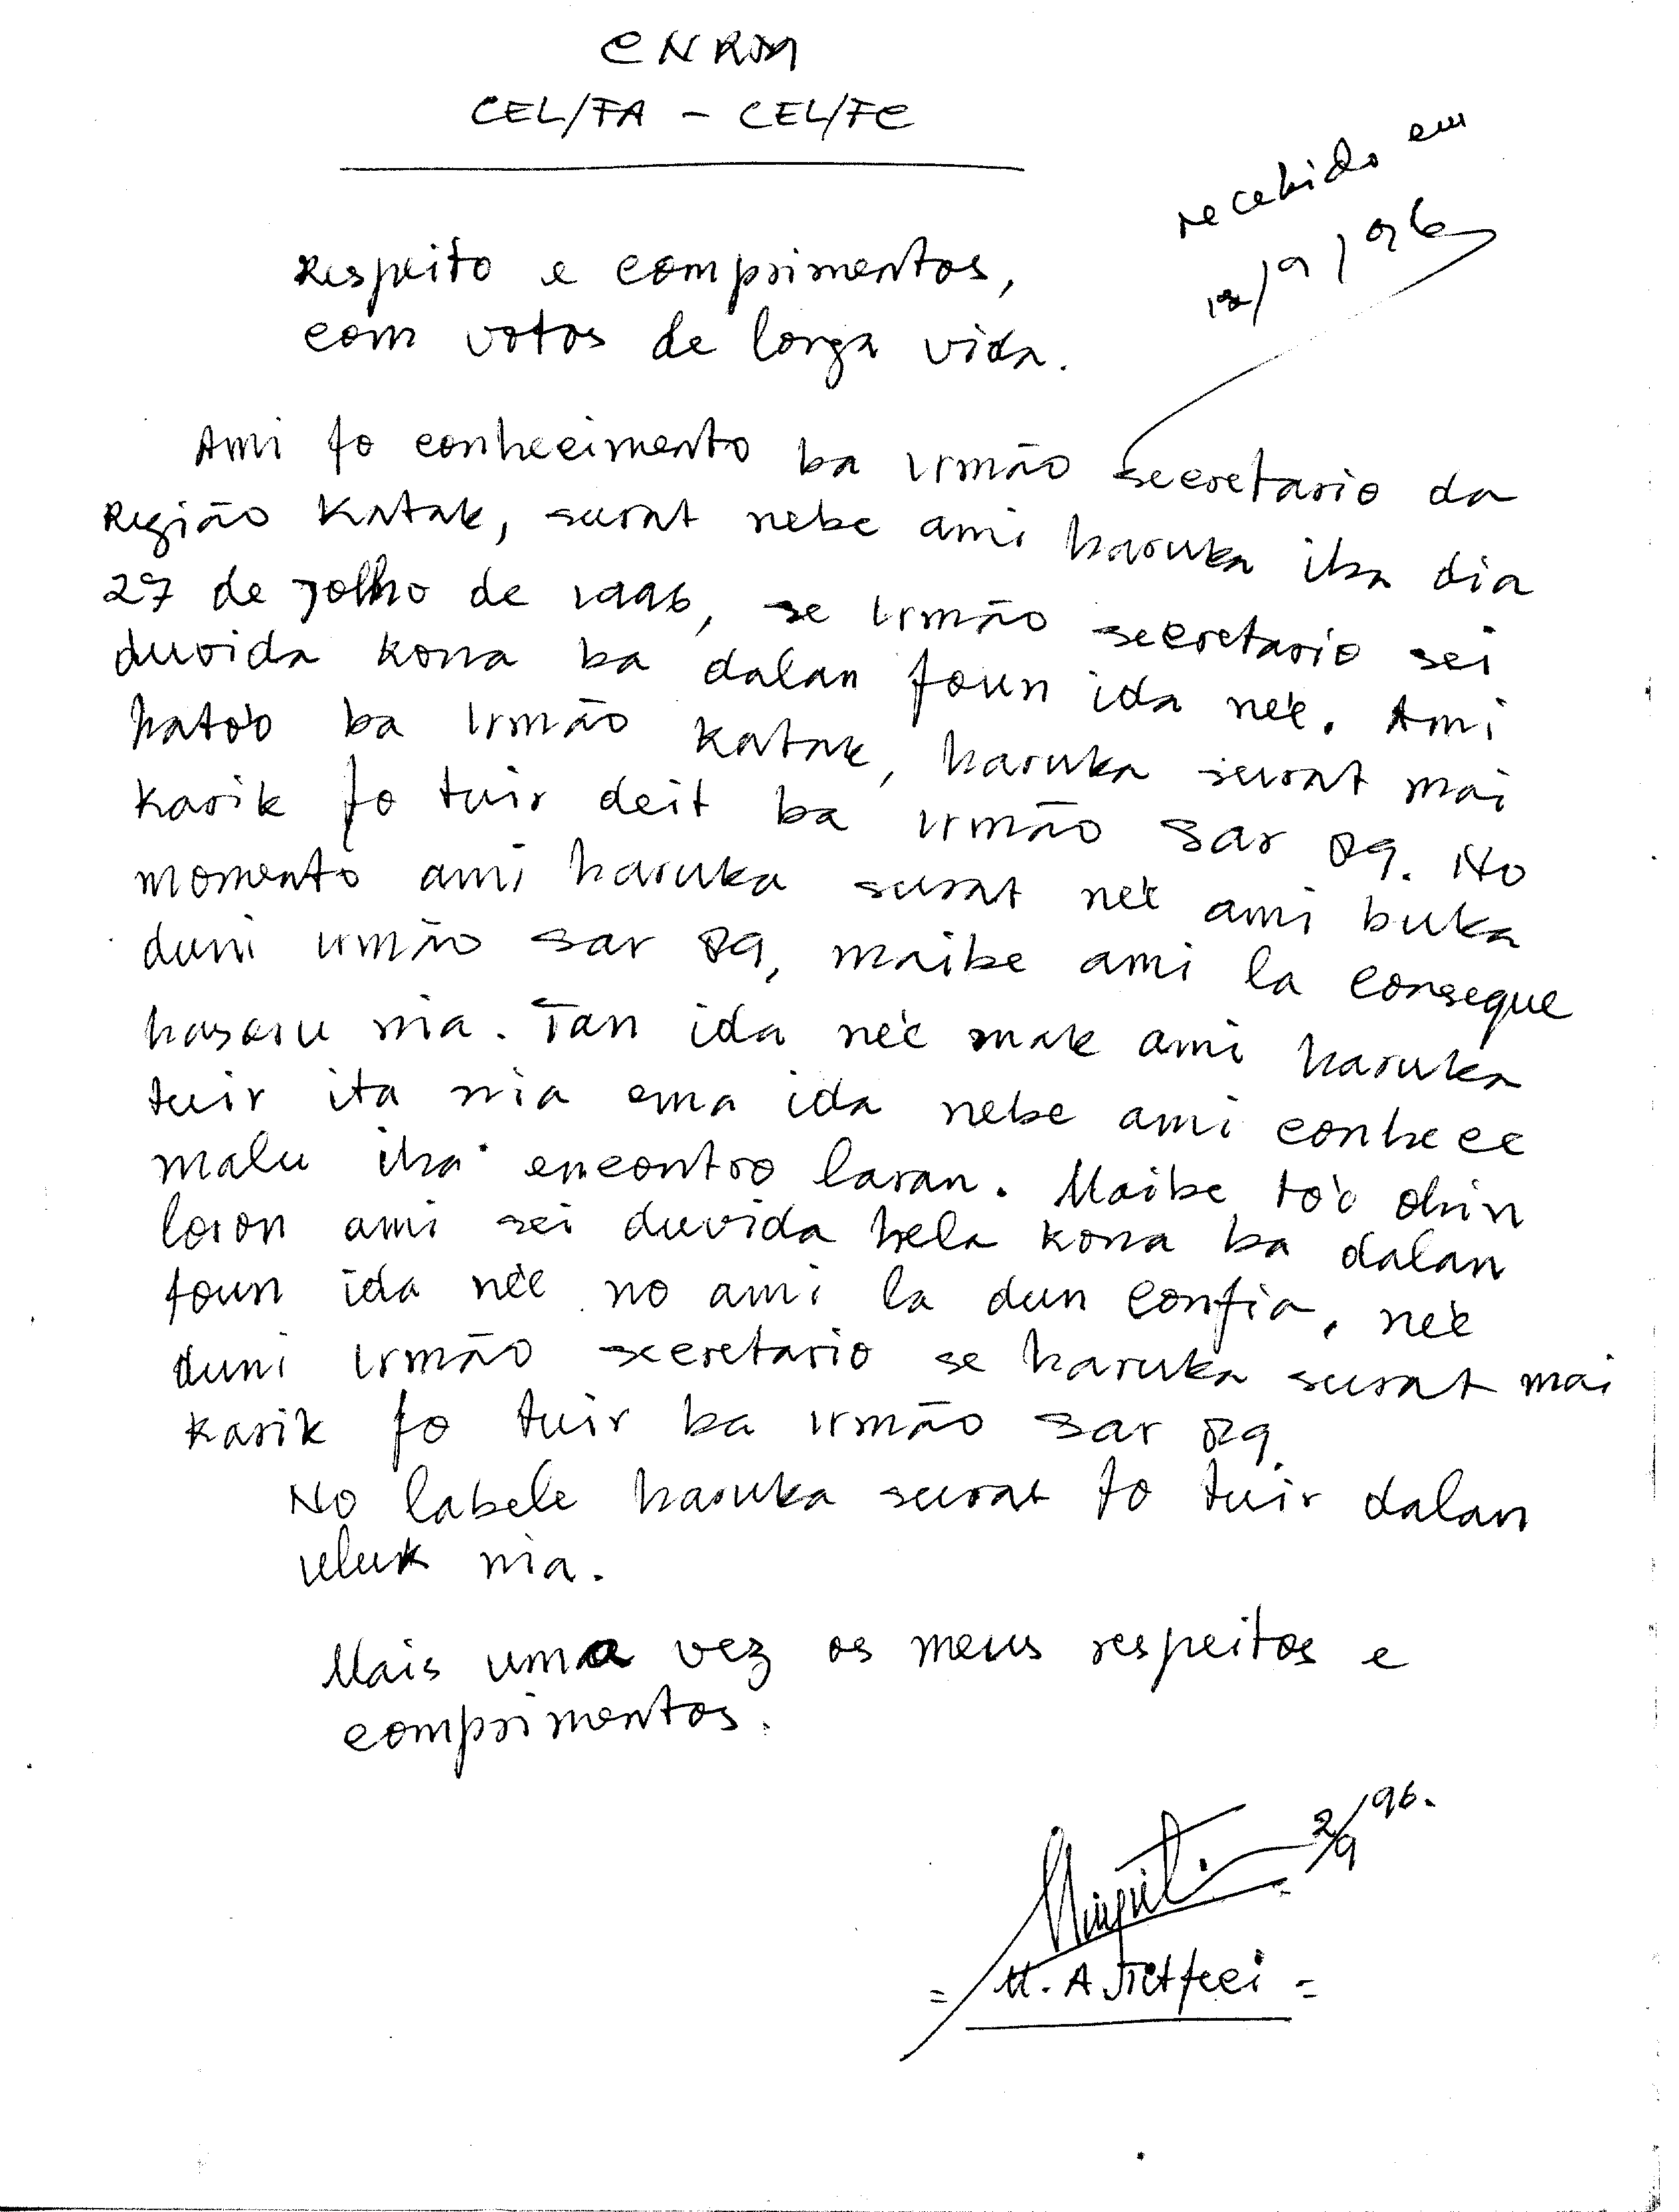 CNRM
CEL/FA - CEL/FC
recebido em
12/9/96
Respeito e comprimentos,
com votos de longa vida.
Ami fo conhecimento ba irmão secretario da
Região Katak, surat nebe ami haruka iha dia
27 de Jolho de 1996, se irmão secretario sei
duvida kona ba dalan foun ida ne'e. Ami
hato'o ba irmão katak, haruka surat mai
karik fo tuir deit ba irmão Sar 89. No
momento ami haruka surat ne'e ami buka
duni irmão Sar 89, maibe ami la consegue
hasoru nia. Tan ida ne'e mak ami haruka
tuir ita nia ema ida nebe ami conhece
malu iha encontro laran. Maibe to'o ohin
loron ami sei duvida hela kona ba dalan
foun ida ne'e no ami la dun confia, ne'e
duni irmão secretario se haruka surat mai
karik fo tuir ba irmão Sar 89
No labele haruka surat fo tuir dalan
uluk nia.
Mais uma vez os meus respeitos e
comprimentos.
2/9/96.
= M. A. =